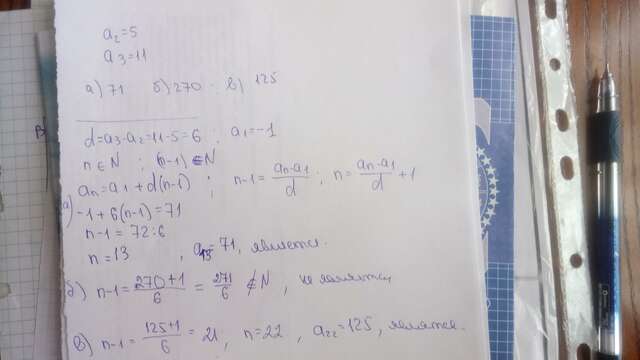 a₂=5
a₃=11
а) 71 б) 270 в) 125
d=a₃-a₂=11-5=6 ; a₁=-1
n∈N ; (n-1)∈N
aₙ=a₁+d(n-1) ; n-1=\frac{aₙ-a₁}{d} ; n=\frac{aₙ-a₁}{d}+1
а) -1+6(n-1)=71
n-1=72:6
n=13 , a₁₃=71, является.
б) n-1=\frac{270+1}{6}=\frac{271}{6}∉N , не является
в) n-1=\frac{125+1}{6}=21 ; n=22 , a₂₂=125, является.